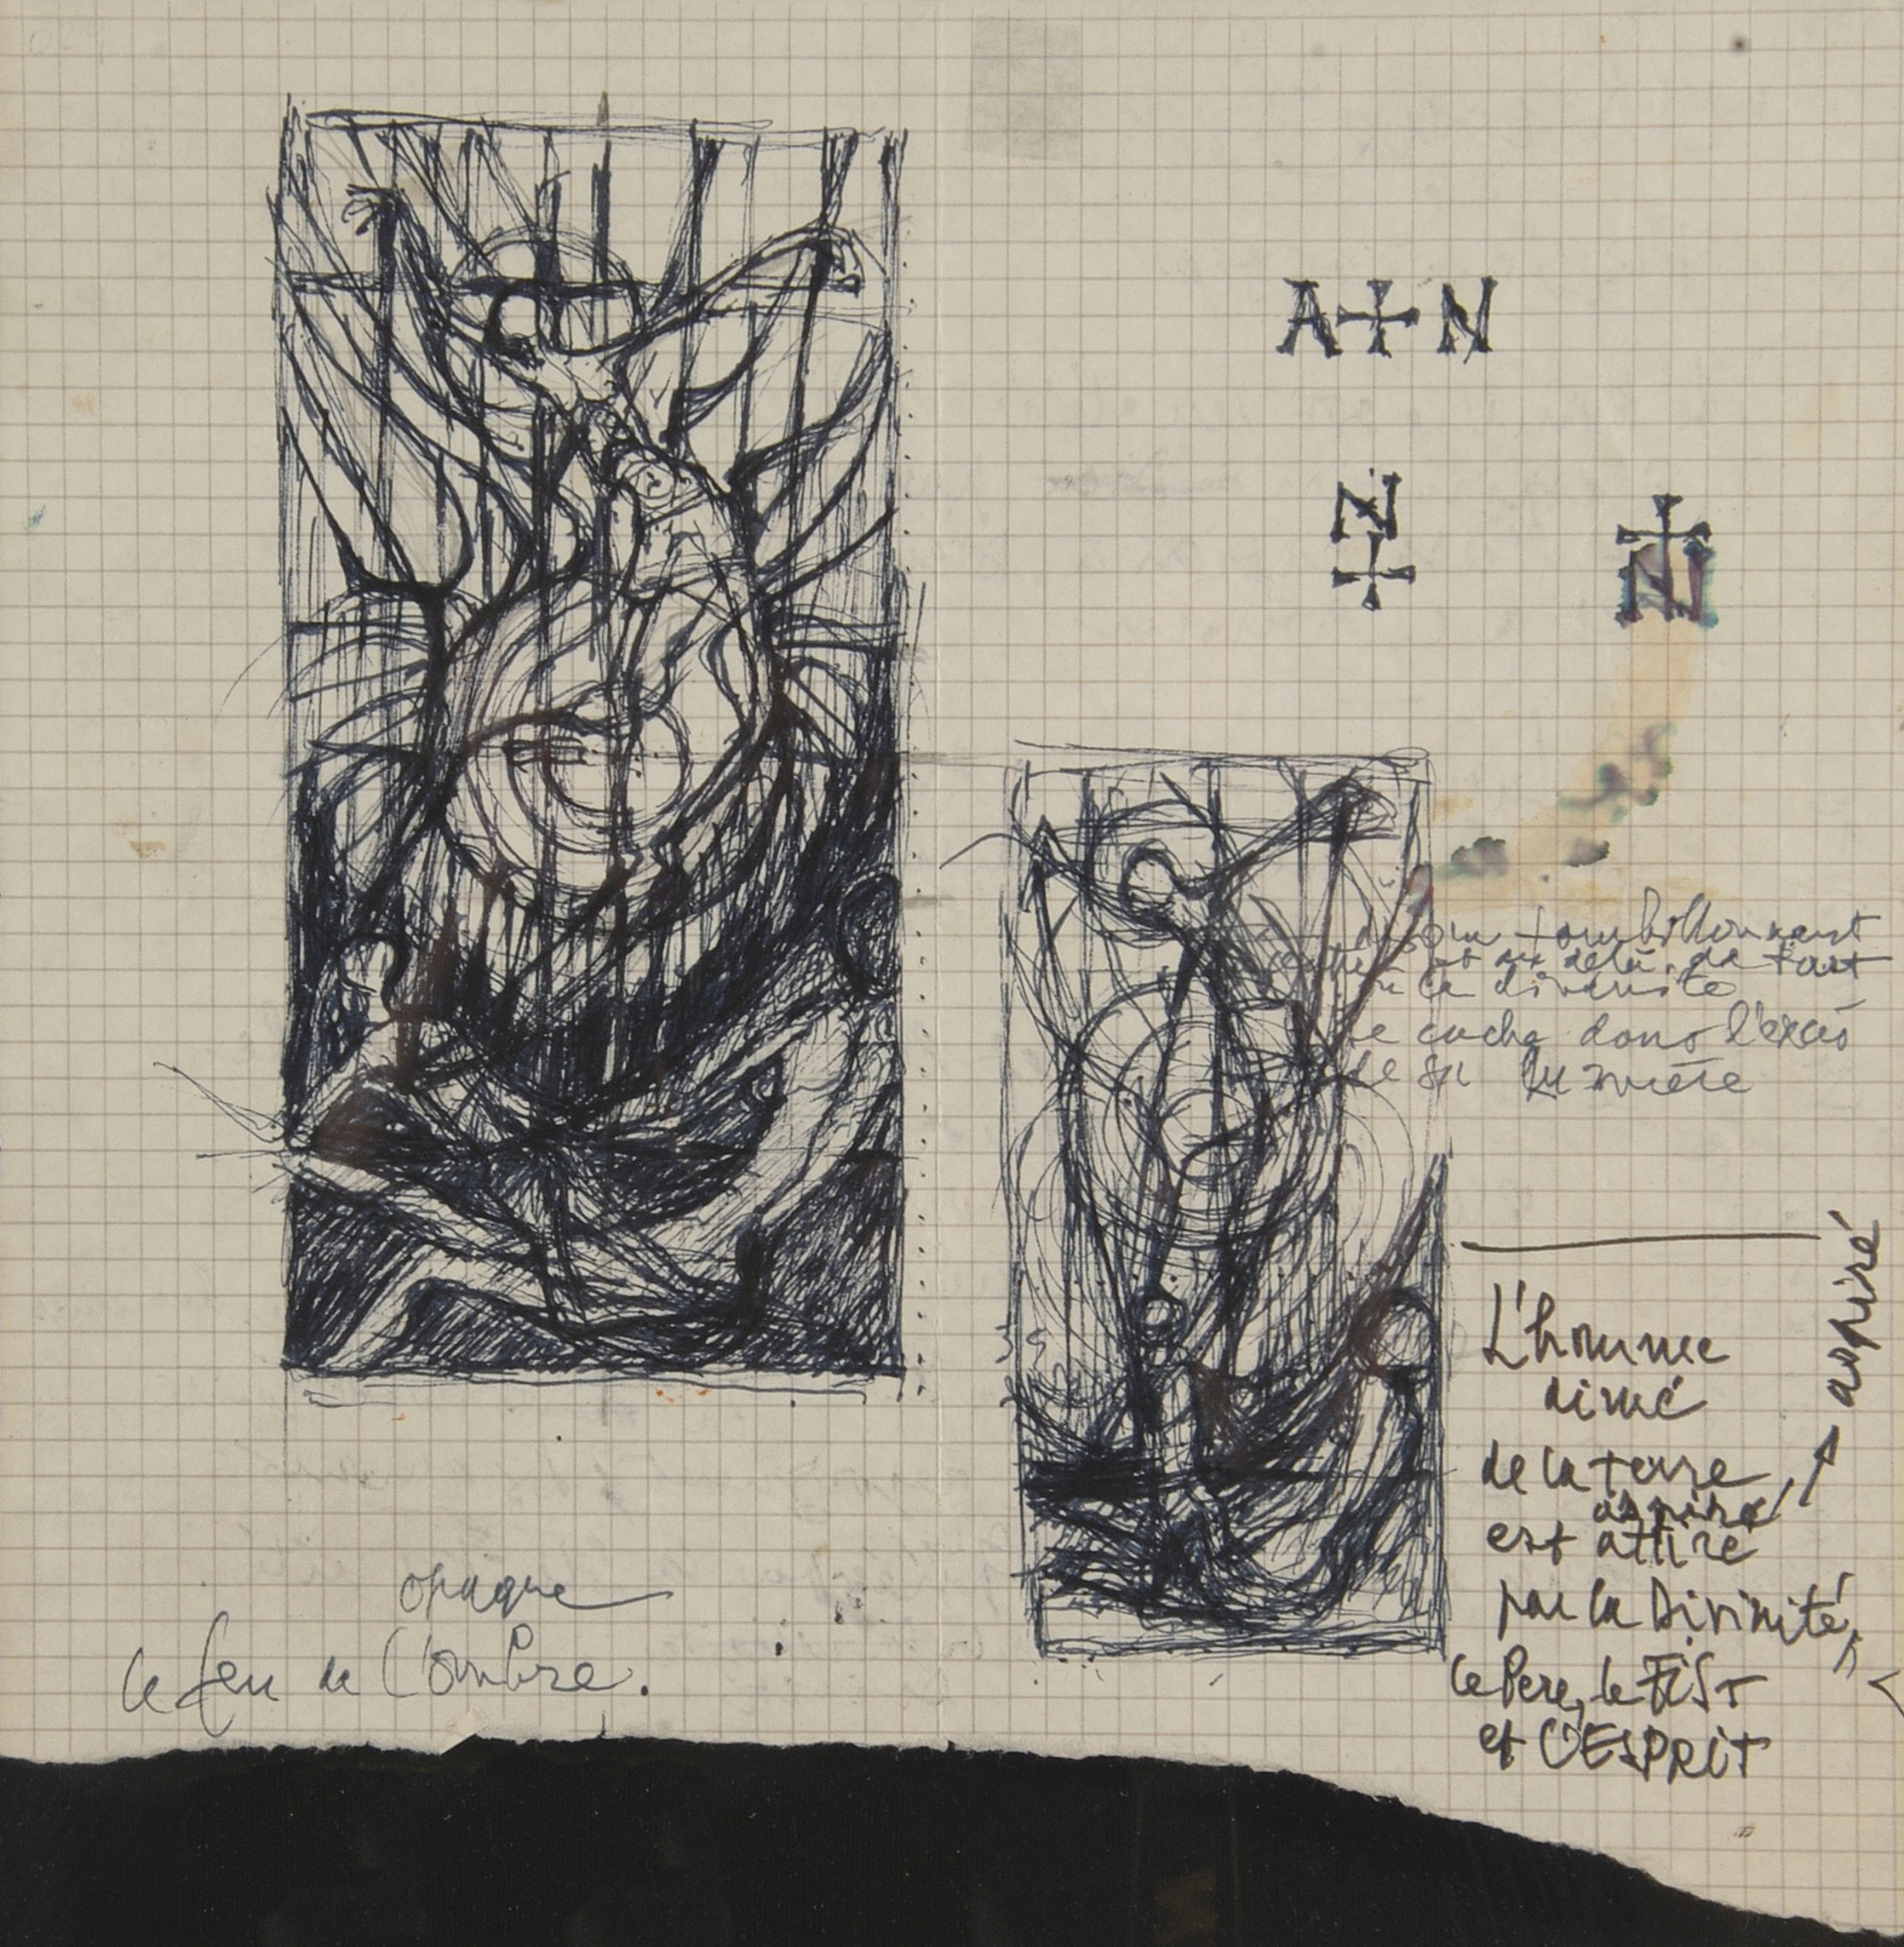 A+N
N
N
tourbillonnant
et au delà de tout
la divinité
se cache dans l'excès
de sa lumière
L'homme
aimé
de la terre
aspiré
est attiré
par la Divinité,
le Père, le FILS
et L'ESPRIT
aspiré
opaque
le feu de l'ombre.